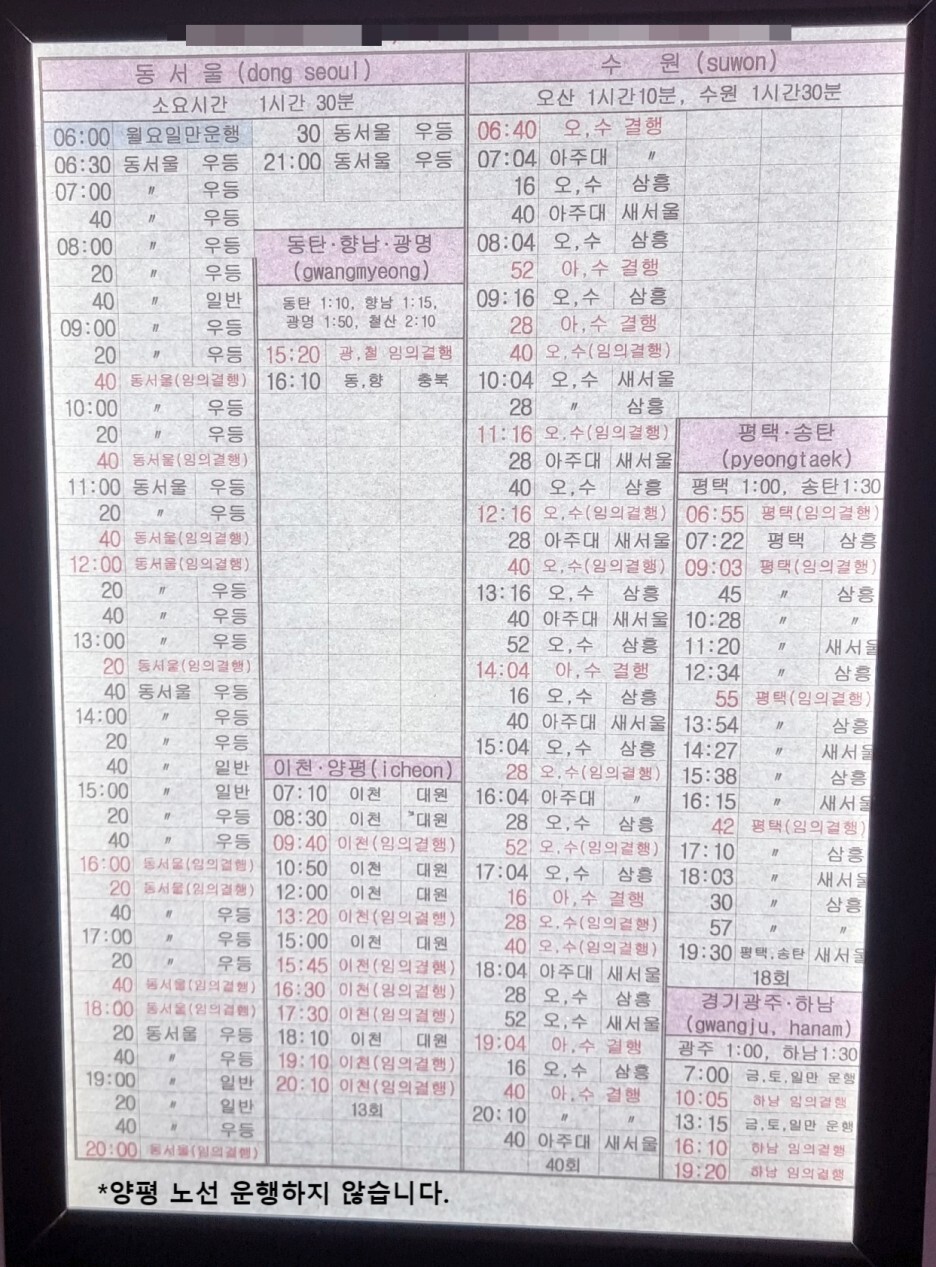 동서울(dong seoul)
소요시간 1시간 30분
06:00 월요일만운행
06:30 동서울 우등
07:00 〃 우등
40 〃 우등
08:00 〃 우등
20 〃 우등
40 〃 일반
09:00 〃 우등
20 〃 우등
40 동서울(임의결행)
10:00 〃 우등
20 〃 우등
40 동서울(임의결행)
11:00 동서울 우등
20 〃 우등
40 동서울(임의결행)
12:00 동서울(임의결행)
20 〃 우등
40 〃 우등
13:00 〃 우등
20 동서울(임의결행)
40 동서울 우등
14:00 〃 우등
20 〃 우등
40 〃 일반
15:00 〃 일반
20 〃 우등
40 〃 우등
16:00 동서울(임의결행)
20 동서울(임의결행)
40 〃 우등
17:00 〃 우등
20 〃 우등
40 동서울(임의결행)
18:00 동서울(임의결행)
20 동서울 우등
40 〃 우등
19:00 〃 일반
20 〃 일반
40 〃 우등
20:00 동서울(임의결행)
30 동서울 우등
21:00 동서울 우등
동탄·향남·광명
(gwangmyeong)
동탄 1:10, 향남 1:15,
광명 1:50, 철산 2:10
15:20 광,철 임의결행
16:10 동,향 충북
이천·양평(icheon)
07:10 이천 대원
08:30 이천 *대원
09:40 이천(임의결행)
10:50 이천 대원
12:00 이천 대원
13:20 이천(임의결행)
15:00 이천 대원
15:45 이천(임의결행)
16:30 이천(임의결행)
17:30 이천(임의결행)
18:10 이천 대원
19:10 이천(임의결행)
20:10 이천(임의결행)
13회
수 원(suwon)
오산 1시간10분, 수원 1시간30분
06:40 오,수 결행
07:04 아주대 〃
16 오,수 삼흥
40 아주대 새서울
08:04 오,수 삼흥
52 아,수 결행
09:16 오,수 삼흥
28 아,수 결행
40 오,수(임의결행)
10:04 오,수 새서울
28 〃 삼흥
11:16 오,수(임의결행)
28 아주대 새서울
40 오,수 삼흥
12:16 오,수(임의결행)
28 아주대 새서울
40 오,수(임의결행)
13:16 오,수 삼흥
40 아주대 새서울
52 오,수 삼흥
14:04 아,수 결행
16 오,수 삼흥
40 아주대 새서울
15:04 오,수 삼흥
28 오,수(임의결행)
16:04 아주대 〃
28 오,수 삼흥
52 오,수(임의결행)
17:04 오,수 삼흥
16 아,수 결행
28 오,수(임의결행)
40 오,수(임의결행)
18:04 아주대 새서울
28 오,수 삼흥
52 오,수 새서울
19:04 아,수 결행
16 오,수 삼흥
40 아,수 결행
20:10 〃 〃
40 아주대 새서울
40회
평택·송탄
(pyeongtaek)
평택 1:00, 송탄1:30
06:55 평택(임의결행)
07:22 평택 삼흥
09:03 평택(임의결행)
45 〃 삼흥
10:28 〃 〃
11:20 〃 새서울
12:34 〃 삼흥
55 평택(임의결행)
13:54 〃 삼흥
14:27 〃 새서울
15:38 〃 삼흥
16:15 〃 새서울
42 평택(임의결행)
17:10 〃 삼흥
18:03 〃 새서울
30 〃 삼흥
57 〃 〃
19:30 평택,송탄 새서울
18회
경기광주·하남
(gwangju, hanam)
광주 1:00, 하남1:30
7:00 금,토,일만 운행
10:05 하남 임의결행
13:15 금,토,일만 운행
16:10 하남 임의결행
19:20 하남 임의결행
*양평 노선 운행하지 않습니다.